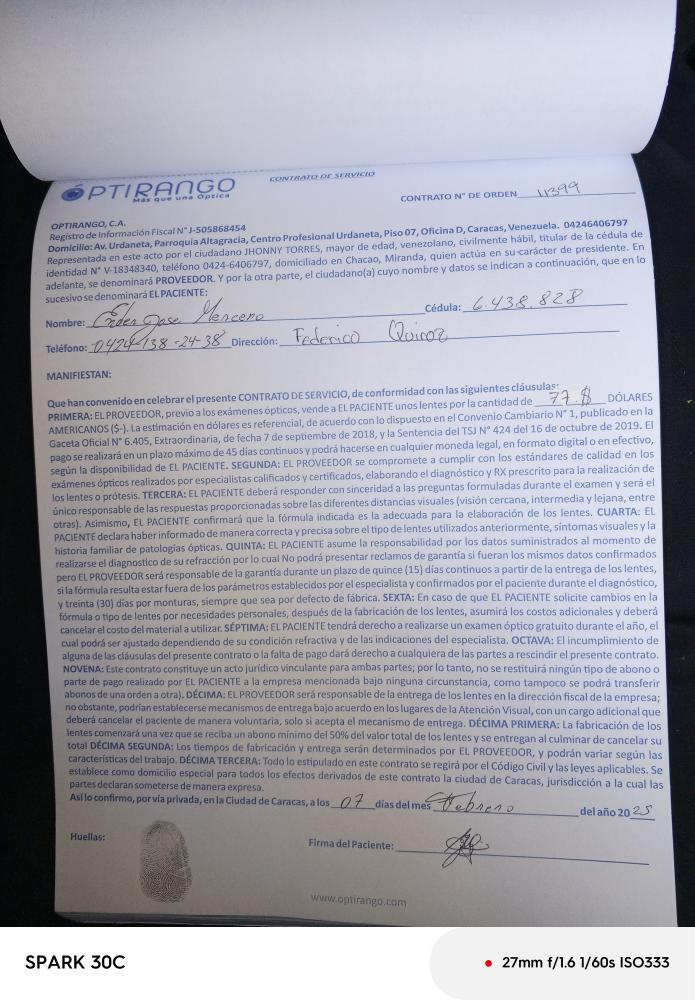 OPTIRANGO
Más que una Óptica
CONTRATO DE SERVICIO
CONTRATO N° DE ORDEN 11399
OPTIRANGO, C.A.
Registro de Información Fiscal N° J-505868454
Domicilio: Av. Urdaneta, Parroquia Altagracia, Centro Profesional Urdaneta, Piso 07, Oficina D, Caracas, Venezuela. 04246406797
Representada en este acto por el ciudadano JHONNY TORRES, mayor de edad, venezolano, civilmente hábil, titular de la cédula de
identidad N° V-18348340, teléfono 0424-6406797, domiciliado en Chacao, Miranda, quien actúa en su carácter de presidente. En
adelante, se denominará PROVEEDOR. Y por la otra parte, el ciudadano(a) cuyo nombre y datos se indican a continuación, que en lo
sucesivo se denominará EL PACIENTE:
Nombre: Jose Cédula: 6.438.828
Teléfono: 0424-138-24-38 Dirección: Federico Quiroz
MANIFIESTAN:
Que han convenido en celebrar el presente CONTRATO DE SERVICIO, de conformidad con las siguientes cláusulas:
PRIMERA: EL PROVEEDOR, previo a los exámenes ópticos, vende a EL PACIENTE unos lentes por la cantidad de 77 $ DÓLARES
AMERICANOS ($-). La estimación en dólares es referencial, de acuerdo con lo dispuesto en el Convenio Cambiario N° 1, publicado en la
Gaceta Oficial N° 6.405, Extraordinaria, de fecha 7 de septiembre de 2018, y la Sentencia del TSJ N° 424 del 16 de octubre de 2019. El
pago se realizará en un plazo máximo de 45 días continuos y podrá hacerse en cualquier moneda legal, en formato digital o en efectivo,
según la disponibilidad de EL PACIENTE. SEGUNDA: EL PROVEEDOR se compromete a cumplir con los estándares de calidad en los
exámenes ópticos realizados por especialistas calificados y certificados, elaborando el diagnóstico y RX prescrito para la realización de
los lentes o prótesis. TERCERA: EL PACIENTE deberá responder con sinceridad a las preguntas formuladas durante el examen y será el
único responsable de las respuestas proporcionadas sobre las diferentes distancias visuales (visión cercana, intermedia y lejana, entre
otras). Asimismo, EL PACIENTE confirmará que la fórmula indicada es la adecuada para la elaboración de los lentes. CUARTA: EL
PACIENTE declara haber informado de manera correcta y precisa sobre el tipo de lentes utilizados anteriormente, síntomas visuales y la
historia familiar de patologías ópticas. QUINTA: EL PACIENTE asume la responsabilidad por los datos suministrados al momento de
realizarse el diagnóstico de su refracción por lo cual No podrá presentar reclamos de garantía si fueran los mismos datos confirmados
pero EL PROVEEDOR será responsable de la garantía durante un plazo de quince (15) días continuos a partir de la entrega de los lentes,
si la fórmula resulta estar fuera de los parámetros establecidos por el especialista y confirmados por el paciente durante el diagnóstico,
y treinta (30) días por monturas, siempre que sea por defecto de fábrica. SEXTA: En caso de que EL PACIENTE solicite cambios en la
fórmula o tipo de lentes por necesidades personales, después de la fabricación de los lentes, asumirá los costos adicionales y deberá
cancelar el costo del material a utilizar. SÉPTIMA: EL PACIENTE tendrá derecho a realizarse un examen óptico gratuito durante el año, el
cual podrá ser ajustado dependiendo de su condición refractiva y de las indicaciones del especialista. OCTAVA: El incumplimiento de
alguna de las cláusulas del presente contrato o la falta de pago dará derecho a cualquiera de las partes a rescindir el presente contrato.
NOVENA: Este contrato constituye un acto jurídico vinculante para ambas partes; por lo tanto, no se restituirá ningún tipo de abono o
parte de pago realizado por EL PACIENTE a la empresa mencionada bajo ninguna circunstancia, como tampoco se podrá transferir
abonos de una orden a otra). DÉCIMA: EL PROVEEDOR será responsable de la entrega de los lentes en la dirección fiscal de la empresa;
no obstante, podrían establecerse mecanismos de entrega bajo acuerdo en los lugares de la Atención Visual, con un cargo adicional que
deberá cancelar el paciente de manera voluntaria, solo si acepta el mecanismo de entrega. DÉCIMA PRIMERA: La fabricación de los
lentes comenzará una vez que se reciba un abono mínimo del 50% del valor total de los lentes y se entregan al culminar de cancelar su
total DÉCIMA SEGUNDA: Los tiempos de fabricación y entrega serán determinados por EL PROVEEDOR, y podrán variar según las
características del trabajo. DÉCIMA TERCERA: Todo lo estipulado en este contrato se regirá por el Código Civil y las leyes aplicables. Se
establece como domicilio especial para todos los efectos derivados de este contrato la ciudad de Caracas, jurisdicción a la cual las
partes declaran someterse de manera expresa.
Así lo confirmo, por vía privada, en la Ciudad de Caracas, a los 07 días del mes Febrero del año 2025
Huellas:
Firma del Paciente:
www.optirango.com
SPARK 30C
27mm f/1.6 1/60s ISO333